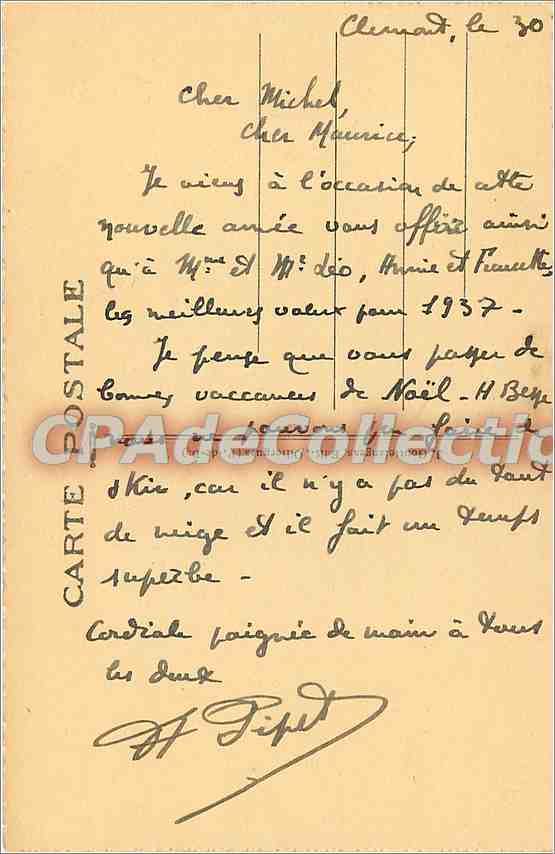 Clermont, le 30
Cher Michel,
Cher Maurice,
Je viens à l'occasion de cette
nouvelle année vous offrir ainsi
qu'à Mme et Mr Léo, Annie et Francette,
les meilleurs vœux pour 1937 -
Je pense que vous passez de
bonnes vaccances de Noël - A Besse
nous ne pouvons pas faire de
skis, car il n'y a pas du tout
de neige et il fait un temps
superbe -
Cordiale poignée de main à tous
les deux
Pipet
CARTE POSTALE
CPAdeCollection